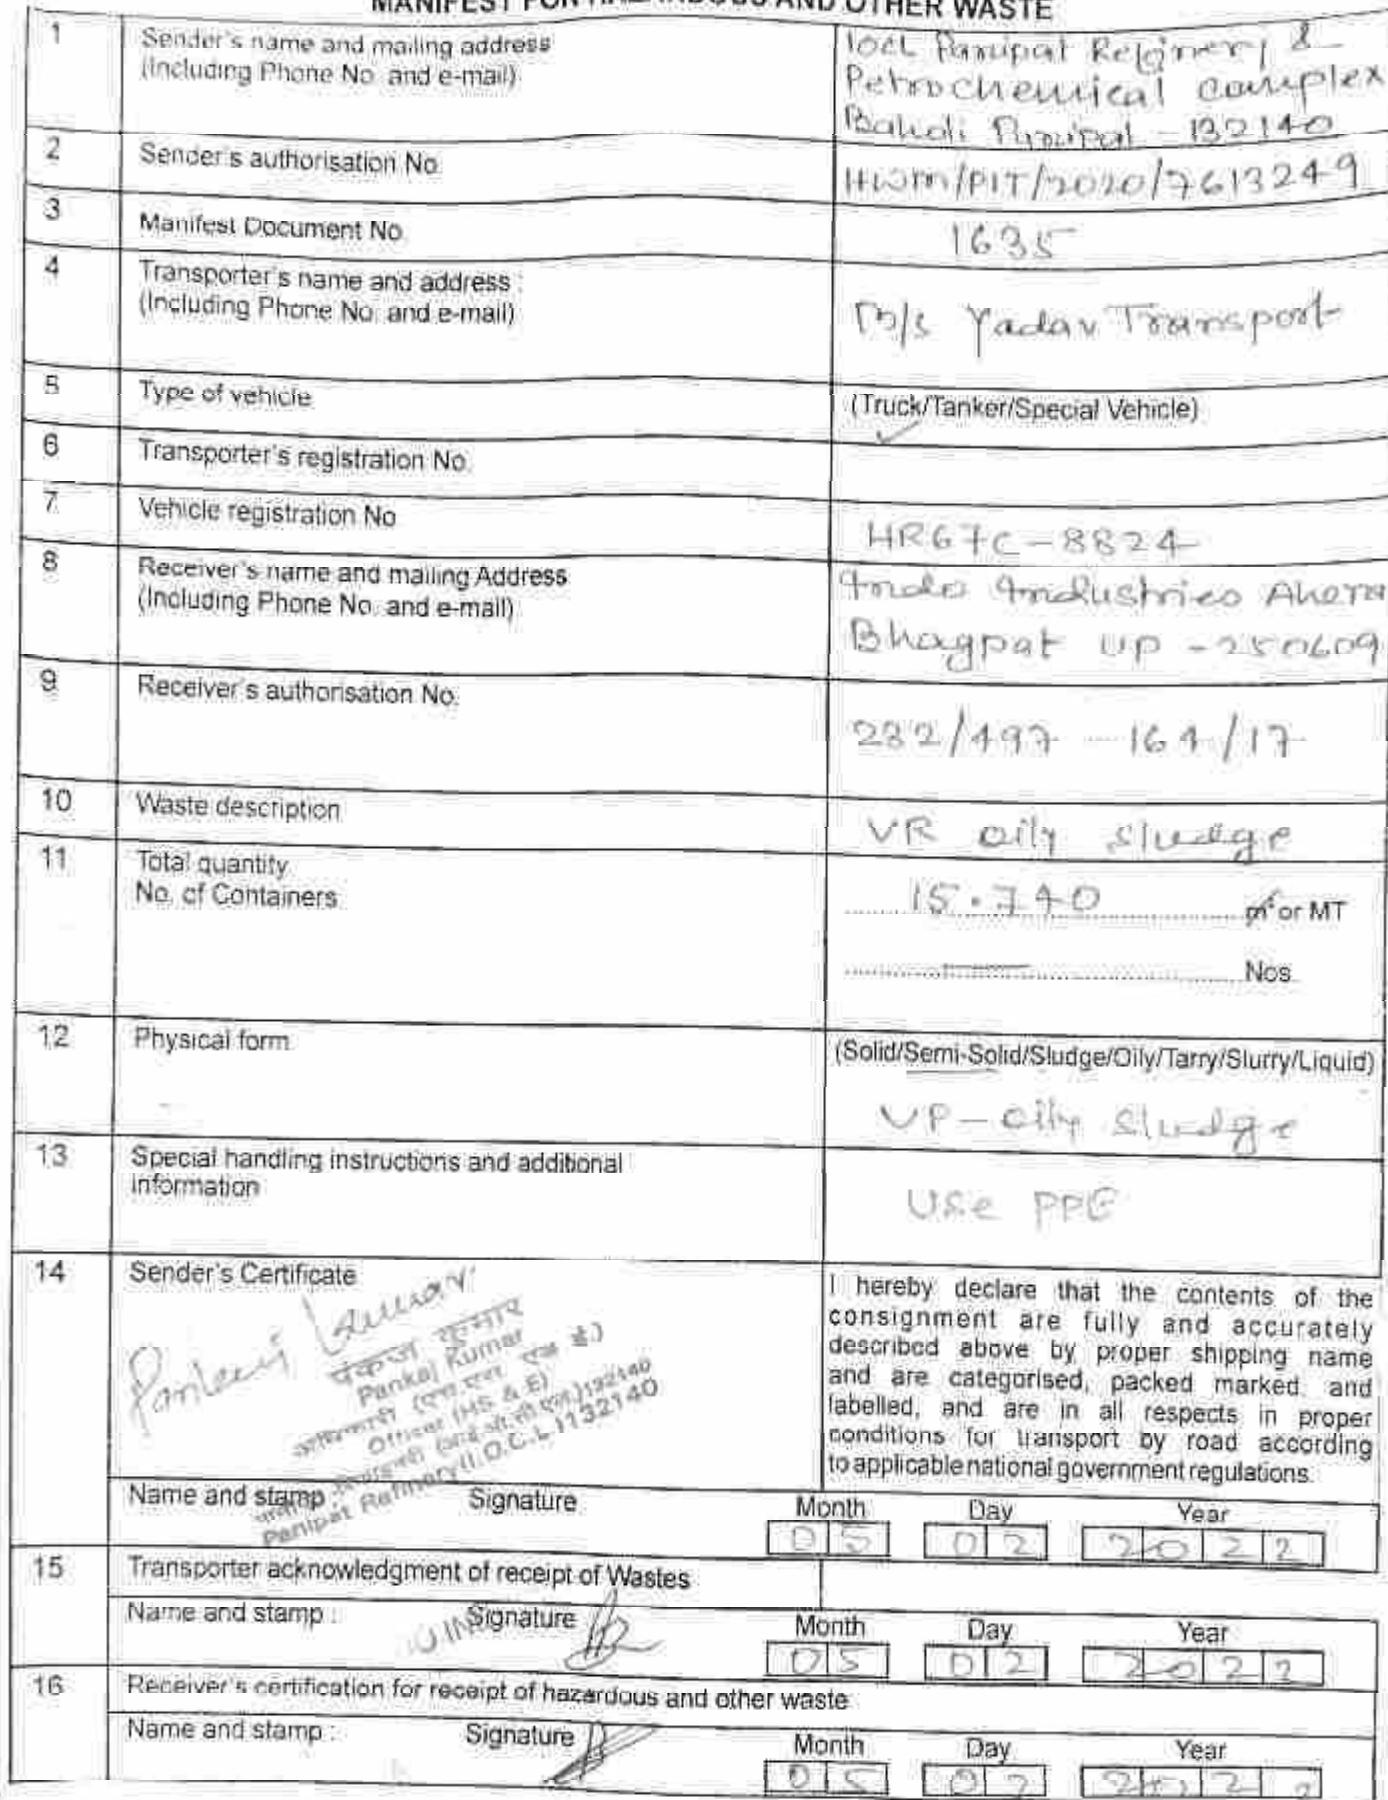 MANIFEST FOR HAZARDOUS AND OTHER WASTE
1 Sender's name and mailing address
(Including Phone No. and e-mail)
IOCL Panipat Refinery &
Petrochemical complex
Baholi Panipat - 132140
2 Sender's authorisation No. HWM/PIT/2020/7613249
3 Manifest Document No. 1635
4 Transporter's name and address :
(Including Phone No. and e-mail)
M/s Yadav Transport
5 Type of vehicle (Truck/Tanker/Special Vehicle)
6 Transporter's registration No.
7 Vehicle registration No HR67C-8824
8 Receiver's name and mailing Address
(Including Phone No. and e-mail)
Indo Industries Ahera
Bhagpat UP - 250609
9 Receiver's authorisation No. 232/497 - 164/17
10 Waste description VR oily sludge
11 Total quantity 15.740 m³ or MT
No. of Containers Nos.
12 Physical form (Solid/Semi-Solid/Sludge/Oily/Tarry/Slurry/Liquid)
VP-oily Sludge
13 Special handling instructions and additional
information
Use PPE
14 Sender's Certificate
I hereby declare that the contents of the
consignment are fully and accurately
described above by proper shipping name
and are categorised, packed marked, and
labelled, and are in all respects in proper
conditions for transport by road according
to applicable national government regulations.
Pankaj Kumar
पंकज कुमार
Pankaj Kumar
(एच.एस. एन्ड ई.)
Officer (HS & E)
(आई.ओ.सी.एल.)132140
Panipat Refinery(I.O.C.L)132140
Name and stamp : Signature Month Day Year
05 02 2022
15 Transporter acknowledgment of receipt of Wastes
Name and stamp : Signature Month Day Year
05 02 2022
16 Receiver's certification for receipt of hazardous and other waste
Name and stamp : Signature Month Day Year
05 02 2022